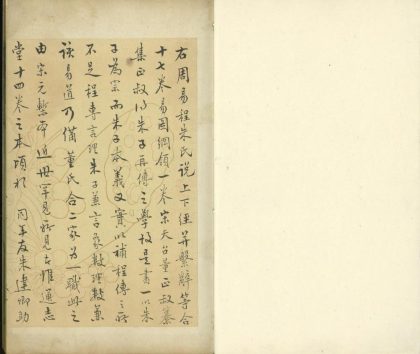 右周易程朱氏說上下經并繫辭等合
十七卷易圖綱領一卷宋天台董正叔纂
集正叔以朱子再傳之學故是書一以朱
子為宗而朱子本義又實以補程傳之所
不足程專言理朱子兼言象數理數兼
該易道乃備董氏合二家為一職此之
由宗元槧本近世罕見所見者惟通志
堂十四卷之本頃於同年友朱建卿助